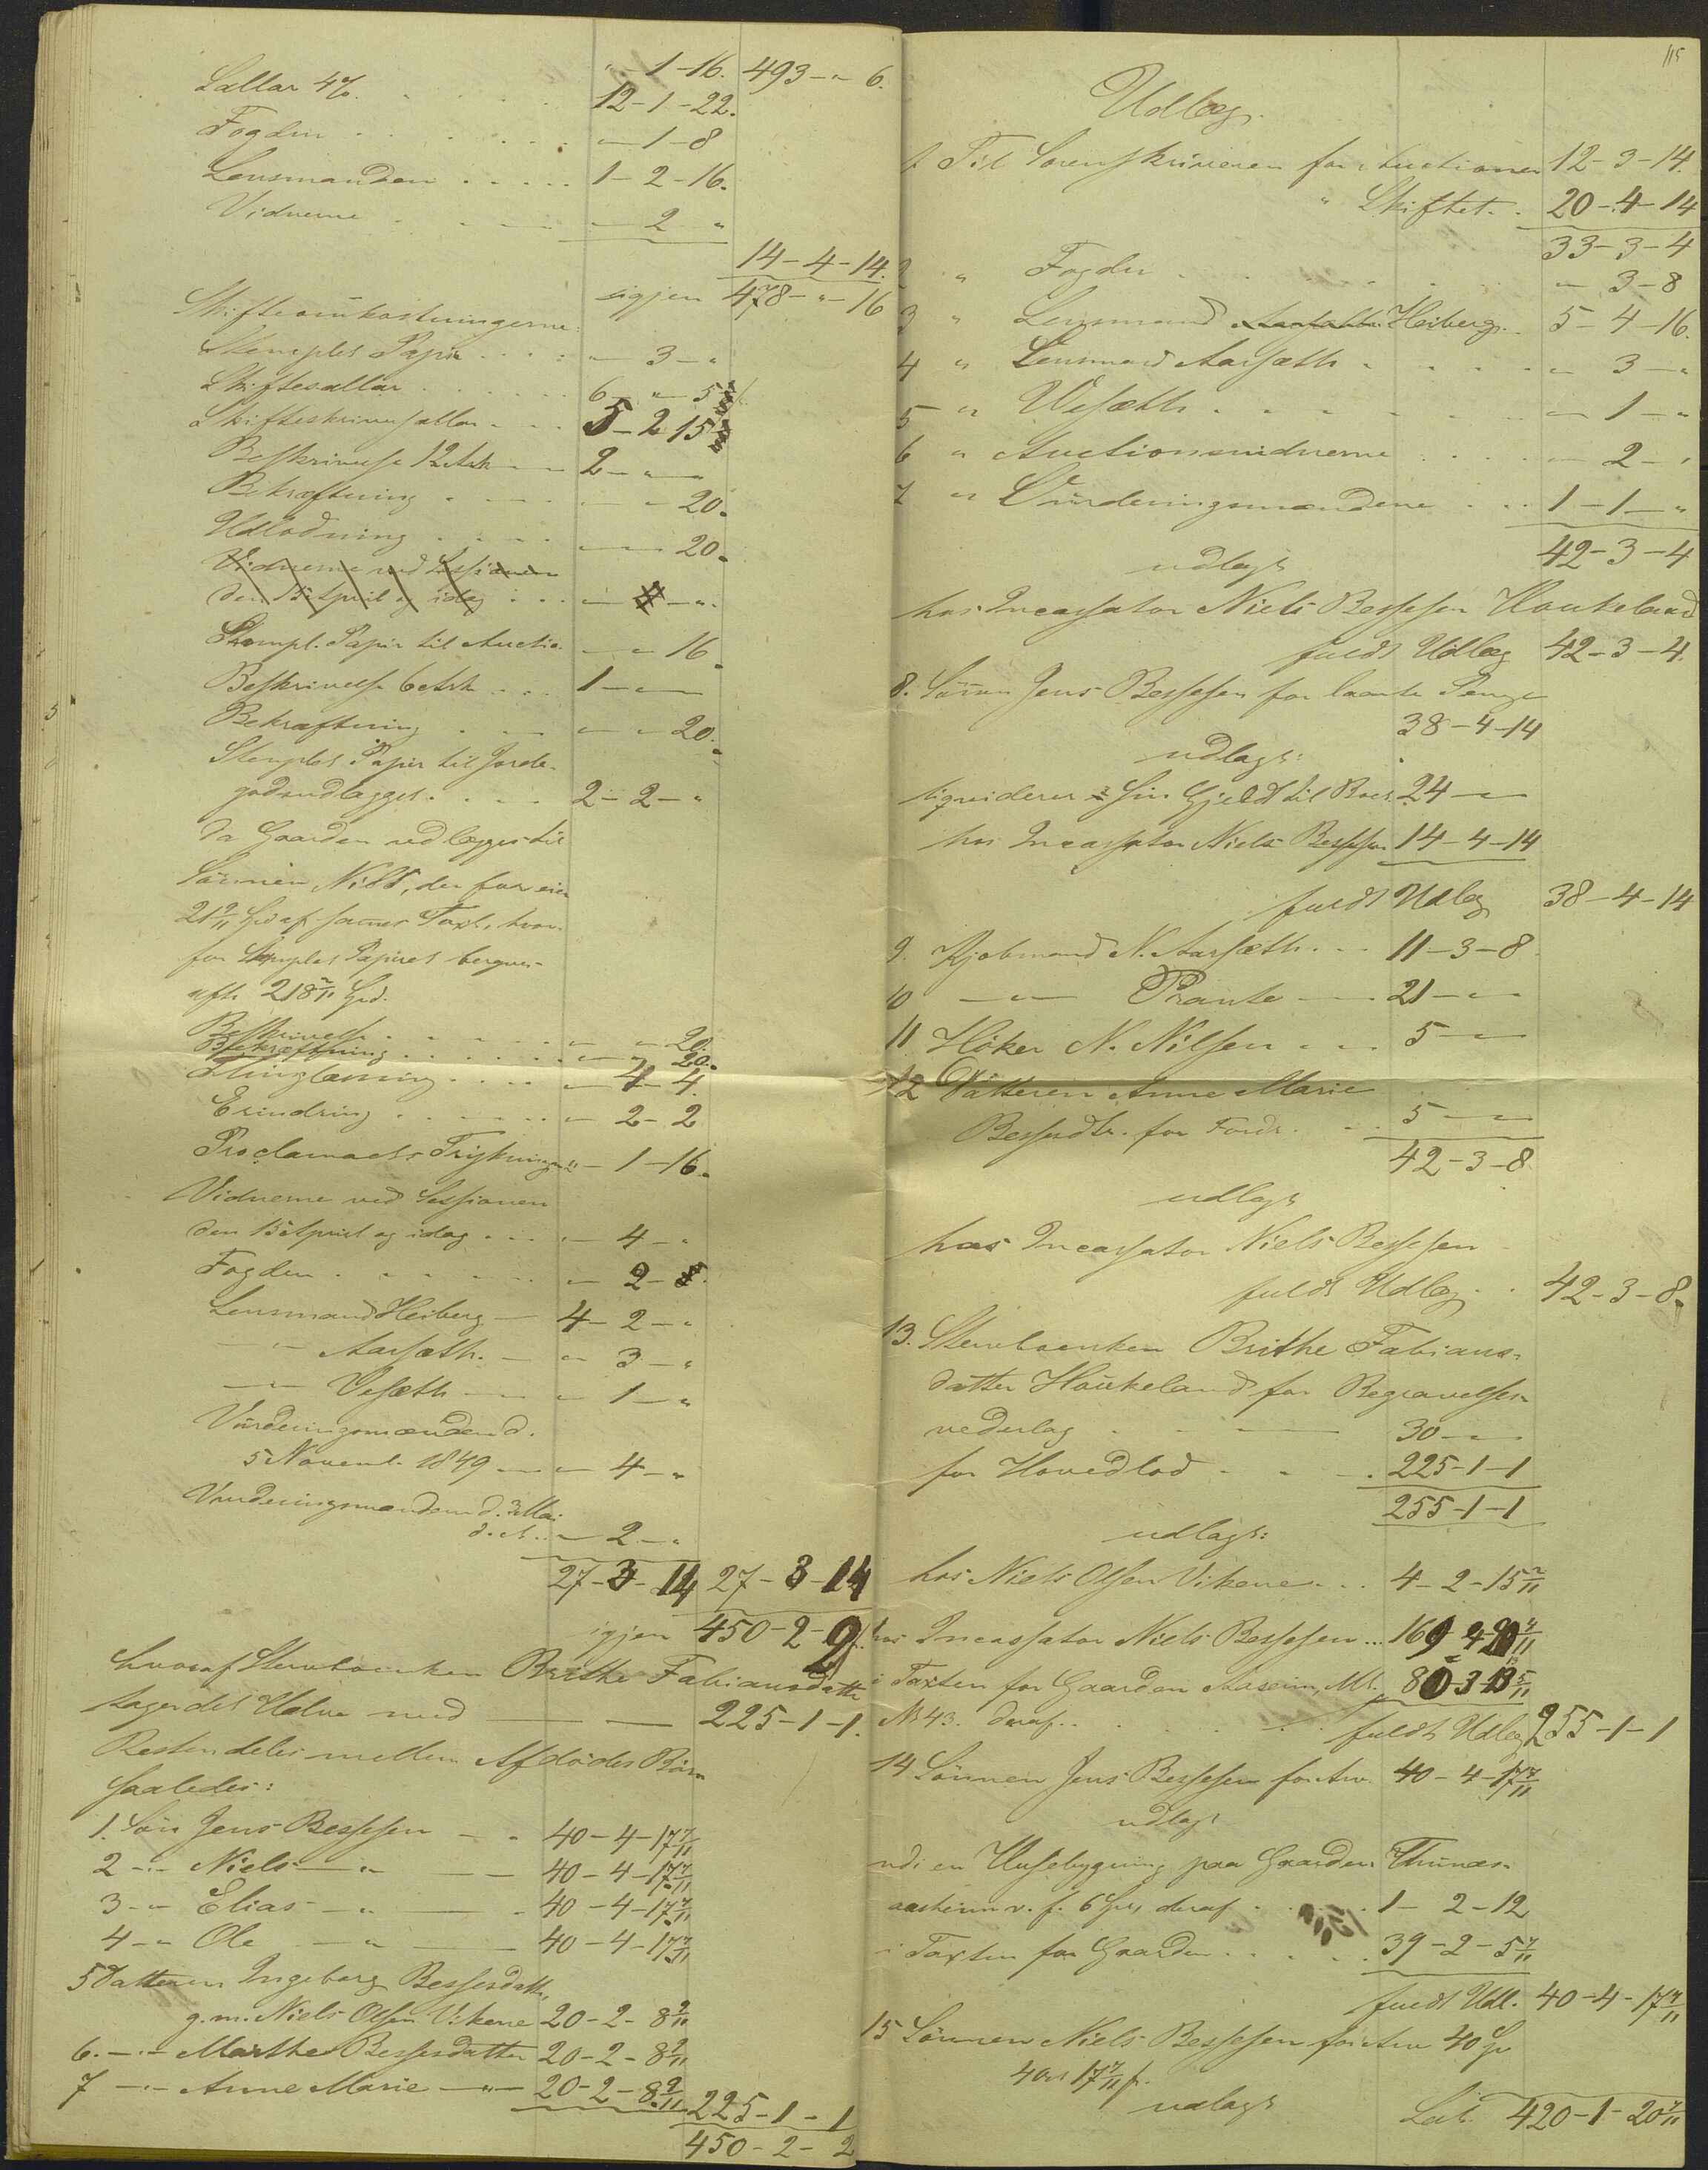 " - 1 - 16. 493 - " - 6.
Sallar 4%. 12 - 1 - 22.
Fogden " - 1 - 8
Lensmanden 1 - 2 - 16.
Vidnerne " - 2 - "
14 - 4 - 14.
igjen 478 - " - 16
Skifteomkostningerne:
Stemplet Papir " - 3 - "
Skiftesallar 6 - " - 5
Skifteskriversallar 5 - 2 - 15
Beskrivelse 12 Ark 2 - " - "
Bekræftning " - " - 20.
Udlodning " - " - 20.
Vidnerne ved Sessionen
den 15 April og idag
Stempl. Papir til Auctio. " - " - 16
Beskrivelse 6 Ark 1 - " - "
Bekræftning " - " - 20.
Stemplet Papir til Jorde-
godsudlægget 2 - 2 - "
da Gaarden udlægges til
Sönnen Nils, der for eier
21 9/11 Spd af sames Taxt, hvor-
for Stemplet Papiret beregnes
efter 218 2/11 Spd.
Beskrivelse " - " - 20.
Bekræftning " - " - 20.
Thinglæsning " - 4 - 4.
Erindring " - 2 - 2
Proclamaets Trykning " - 1 - 16.
Vidnerne ved Sessionen
den 15 April og idag " - 4 - "
Fogden " - 2 - 8.
Lensmand Heiberg 4 - 2 - "
- " - Aarsæth. " - 3 - "
- " - Vesæth " - 1 - "
Vurderingsmændene d.
5 Novemb. 1849 " - 4 - "
Vurderingsmændene d. 3 Mai
d. A. " - 2 - "
27 - 3 - 14 27 - 3 - 14
igjen 450 - 2 - 2
hvoraf Stervboenken Brithe Fabiansdatter
tager det Halve med 225 - 1 - 1.
Resten deles mellem Afdödes Börn
saaledes:
1. Sön Jens Bessesen 40 - 4 - 17 7/11
2 - " - Niels - " - 40 - 4 - 17 7/11
3 - " - Elias - " - 40 - 4 - 17 7/11
4 - " - Ole - " - 40 - 4 - 17 7/11
5 Datteren Ingeborg Bessesdatter,
g. m. Niels Olsen Vikene 20 - 2 - 8 9/11
6. - " - Marthe Bessesdatter 20 - 2 - 8 9/11
7 - " - Anne Marie - " - 20 - 2 - 8 9/11 225 - 1 - 1
450 - 2 - 2
115
Udlæg.
1 Til Sorenskriveren for Auctionen 12 - 3 - 14.
" Skiftet. 20 - 4 - 14
33 - 3 - 4
2 " Fogden " - 3 - 8
3 " Lensmand Heiberg 5 - 4 - 16.
4 " Lensmand Aarsæth " - 3 - "
5 " Vesæth " - 1 - "
6 " Auctionsvidnerne " - 2 - "
7 " Vurderingsmændene 1 - 1 - "
42 - 3 - 4
udlagt
hos Incassator Niels Bessesen Houkeland
fuldt Udlæg 42 - 3 - 4.
8. Sönen Jens Bessesen for laante Penge
38 - 4 - 14
udlagt:
liqviderer i sin Gjeld til Boet 24 - " - "
hos Incassator Niels Bessesen 14 - 4 - 14
fuldt Udlæg 38 - 4 - 14
9. Kjöbmand N. Aarsæth 11 - 3 - 8
10 - " - Prante 21 - " - "
11 Höker N. Nilsen 5 - " - "
12 Datteren Anne Marie
Bessesdtr. for Fordr. 5 - " - "
42 - 3 - 8
udlagt
hos Incassator Niels Bessesen
fuldt Udlæg 42 - 3 - 8.
13. Stervboenken Brithe Fabians-
datter Houkeland for Begravelses-
vederlag 30 - " - "
for Hovedlod 225 - 1 - 1
255 - 1 - 1
udlagt:
hos Niels Olsen Vikene 4 - 2 - 15 2/11
hos Incassator Niels Bessesen 169 - 4 - 20 4/11
i Taxten for Gaarden Aaseim, Mt. 80 - 3 - 13 5/11
No 43. deraf. fuldt Udlæg 255 - 1 - 1
14 Sönnen Jens Bessesen for Arv 40 - 4 - 17 7/11
udlagt
udi en Husebygning paa Gaarden Thunes-
aasheim v. f. 6 Spd, deraf 1 - 2 - 12
i Taxten for Gaarden 39 - 2 - 5 7/11
fuldt Udl. 40 - 4 - 17 7/11
15 Sönnen Niels Bessesen for Arv 40 Sp
4 ort 17 7/11 s.
udlagt
Lat. 420 - 1 - 20 7/11